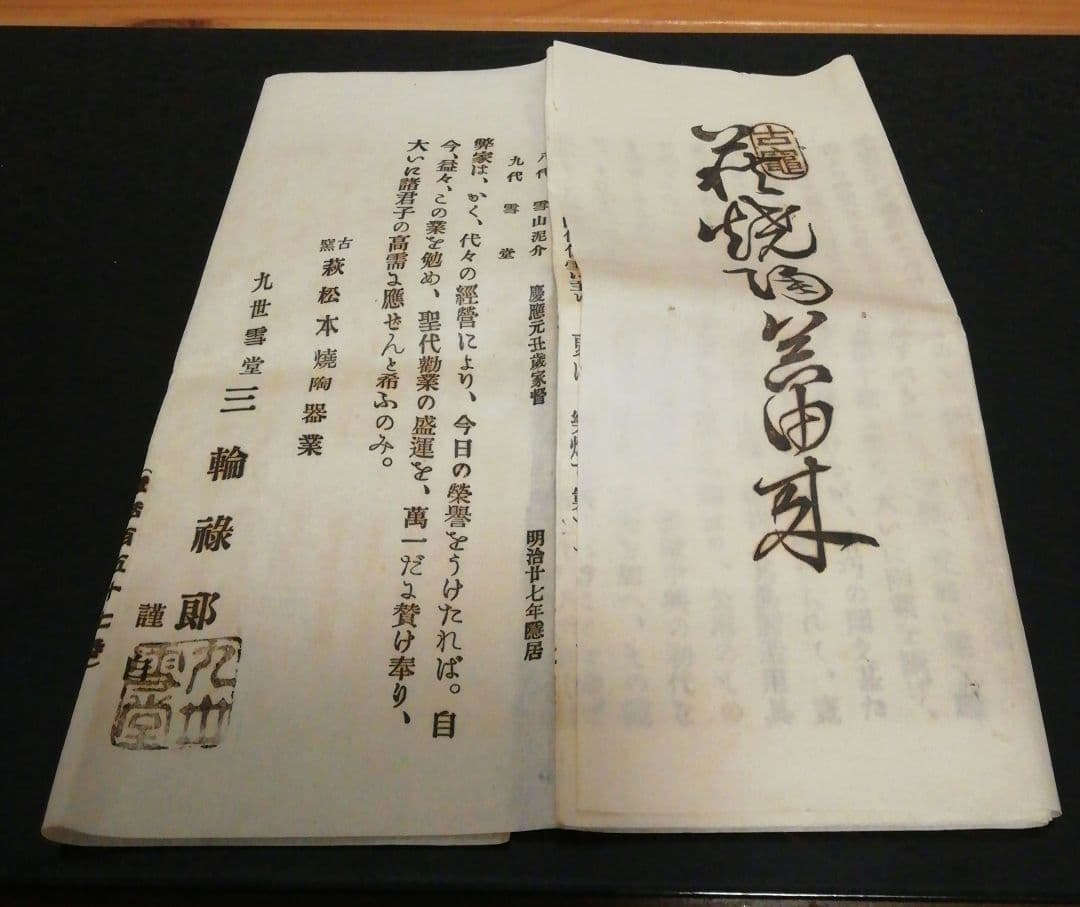 古竈
萩焼陶器由来
八代 雪山泥介 慶應元丑歳家督 明治廿七年隱居
九代 雪堂
弊家は、かく、代々の經營により、今日の榮譽をうけたれば。自
今、益々、この業を勉め、聖代勸業の盛運を、萬一だよ賛け奉り、
大いに諸君子の高需よ應せんと希ふのみ。
古窯 萩松本燒陶器業
九世雪堂 三輪祿郎
謹
九世雪堂